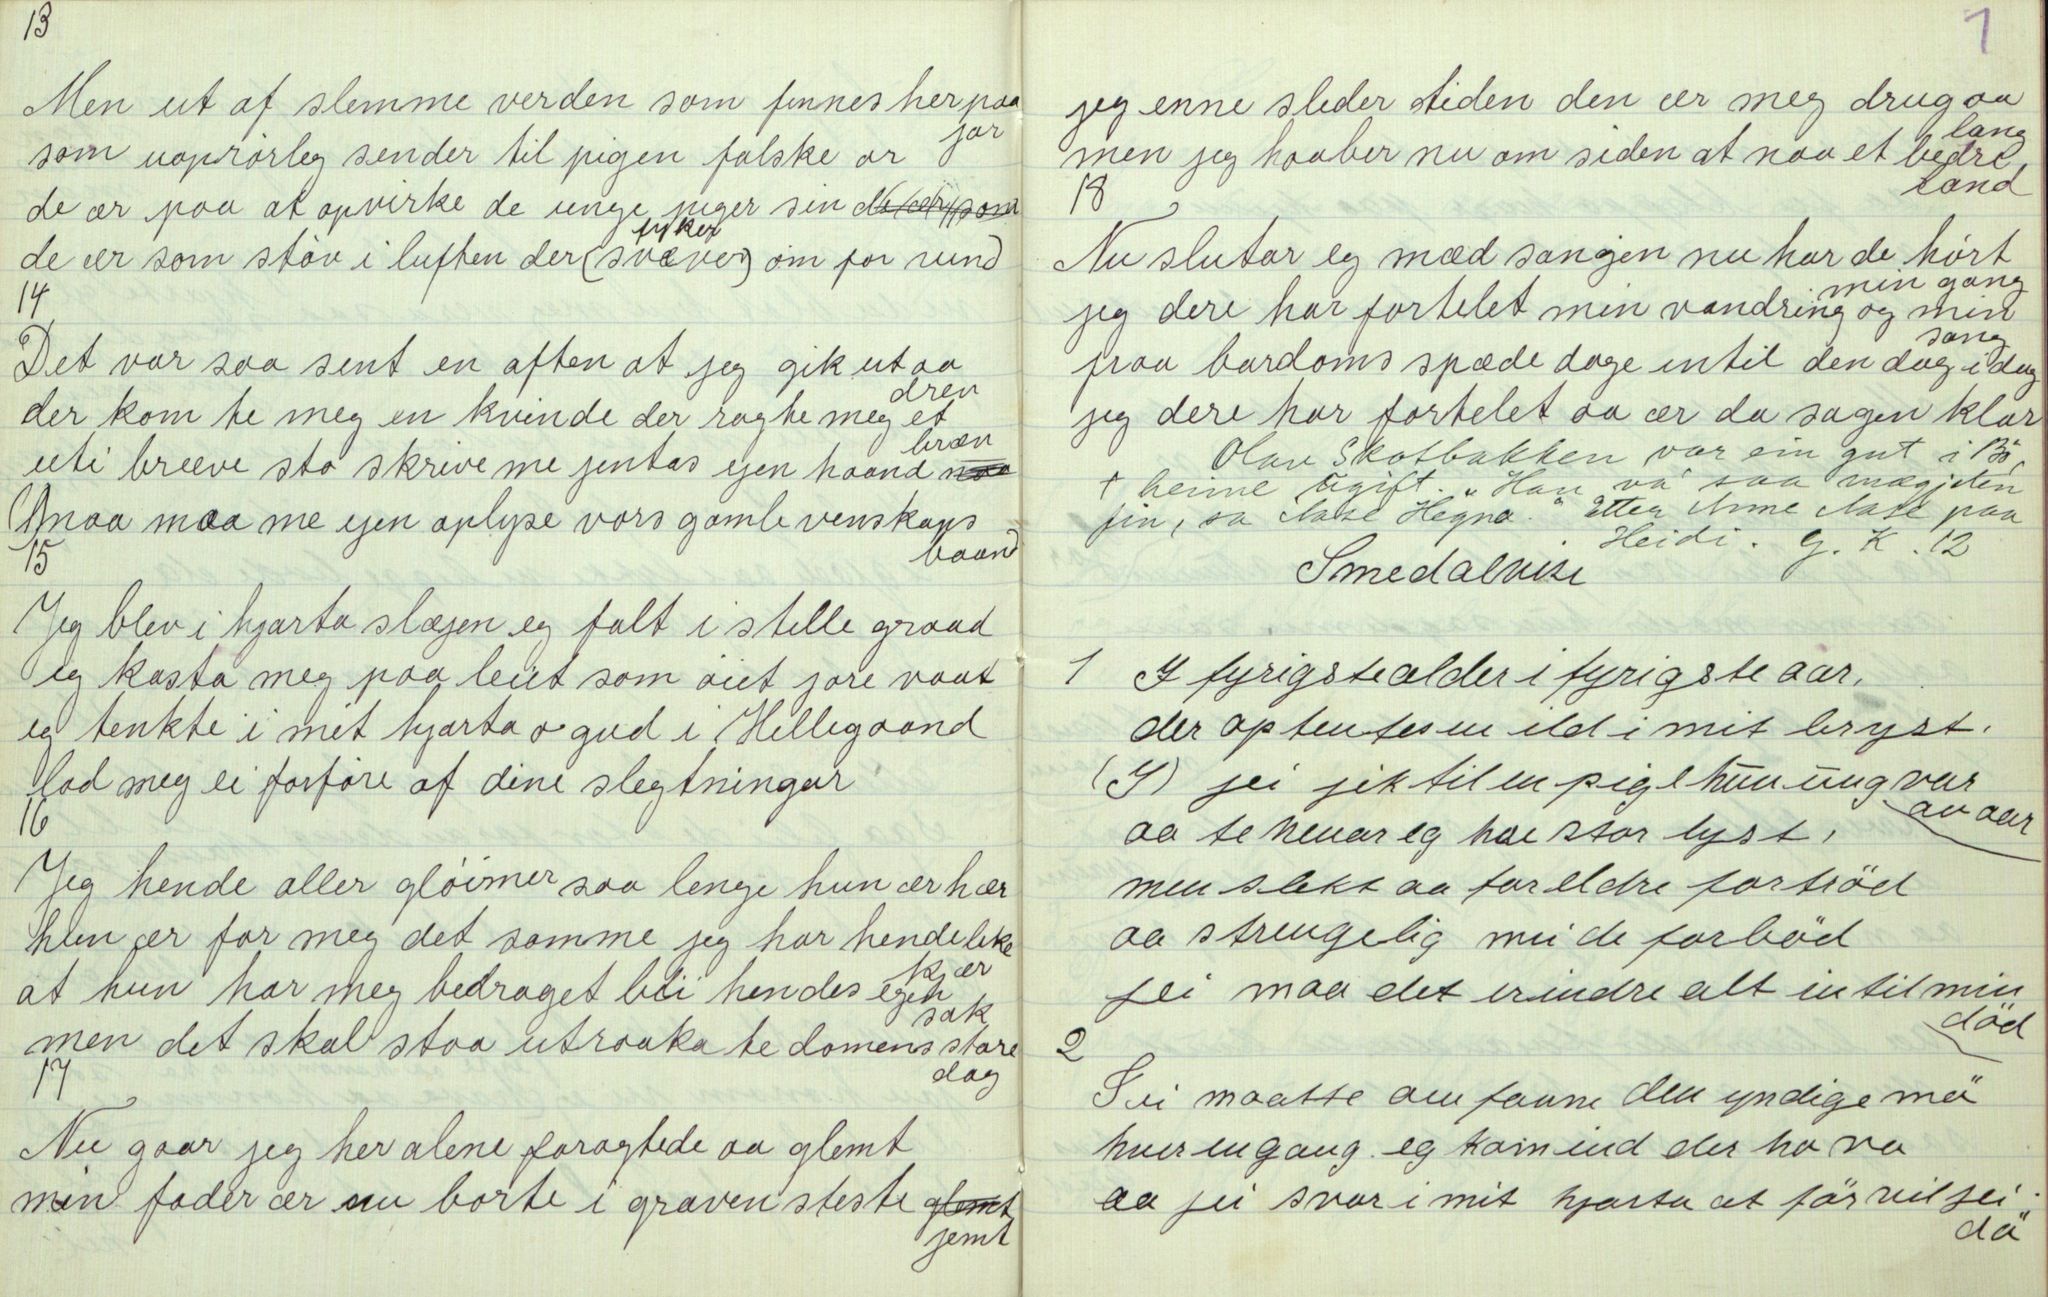 13
Men ut af slemme verden som finnes her paa
jor
som uoprörleg sender til pigen falske or
de ær paa at opvirke de unge piger sin
fyker
de ær som stöv i luften der (svæver) om for vind
14
Det var saa sent en aften at jeg gik ut aa
dren
der kom te meg en kvinde der ragte meg et
bræv
uti bræve sto skrive me jentas egen haand
maa maa me egen oplyse vors gamle venskaps
baand
15
Jeg blev i hjarta slægen eg falt i stille graad
eg kasta meg paa leiet som öiet jore vaat
eg tenkte i mit hjarta o gud i Hellegaand
lad meg ei forföre af dine slegtningar
16
Jeg hende aller glöimer saa lenge hun ær hær
hun ær for meg det samme jeg har hende like
kjær
at hun har meg bedraget bli hendes egen
sak
men det skal staa utraaka te domens store
dag
17
Nu gaar jeg her alene foragtede aa glemt
min fader ær nu borte i graven steste glemt
jemt
1
jeg enne sleder tiden den ær meg drug aa
lang
men jeg haaber nu om siden at naa et bedre
land
18
Nu slutar eg mæd sangen nu har de hört
min gang
jeg dere har fortelet min vandring og min
sang
fraa bardoms spæde dage intil den dag i dag
jeg dere har fortelet saa ær da sagen klar
Olav Skatbakken var ein gut i Bö,
† heime ugift. "Han va' saa mægjeten
fin", sa Aase Hegna. Etter Anne Aase paa
Heidi. G. K. 12
Smedalvise
1 I fyrigste alder i fyrigste aar,
der optentes en ild i mit bryst.
(I) jei jik til en pige hun ung var
av aar
aa te henar eg hae stor lyst,
men slekt aa foreldre fortröd
aa strengelig mei de forböd
jei maa det erindre alt intil min
död
2
Jei maatte omfavne den yndige mö
hver engang eg kom ind der ho va
aa jei svor i mit hjarta at för vil jei
dö